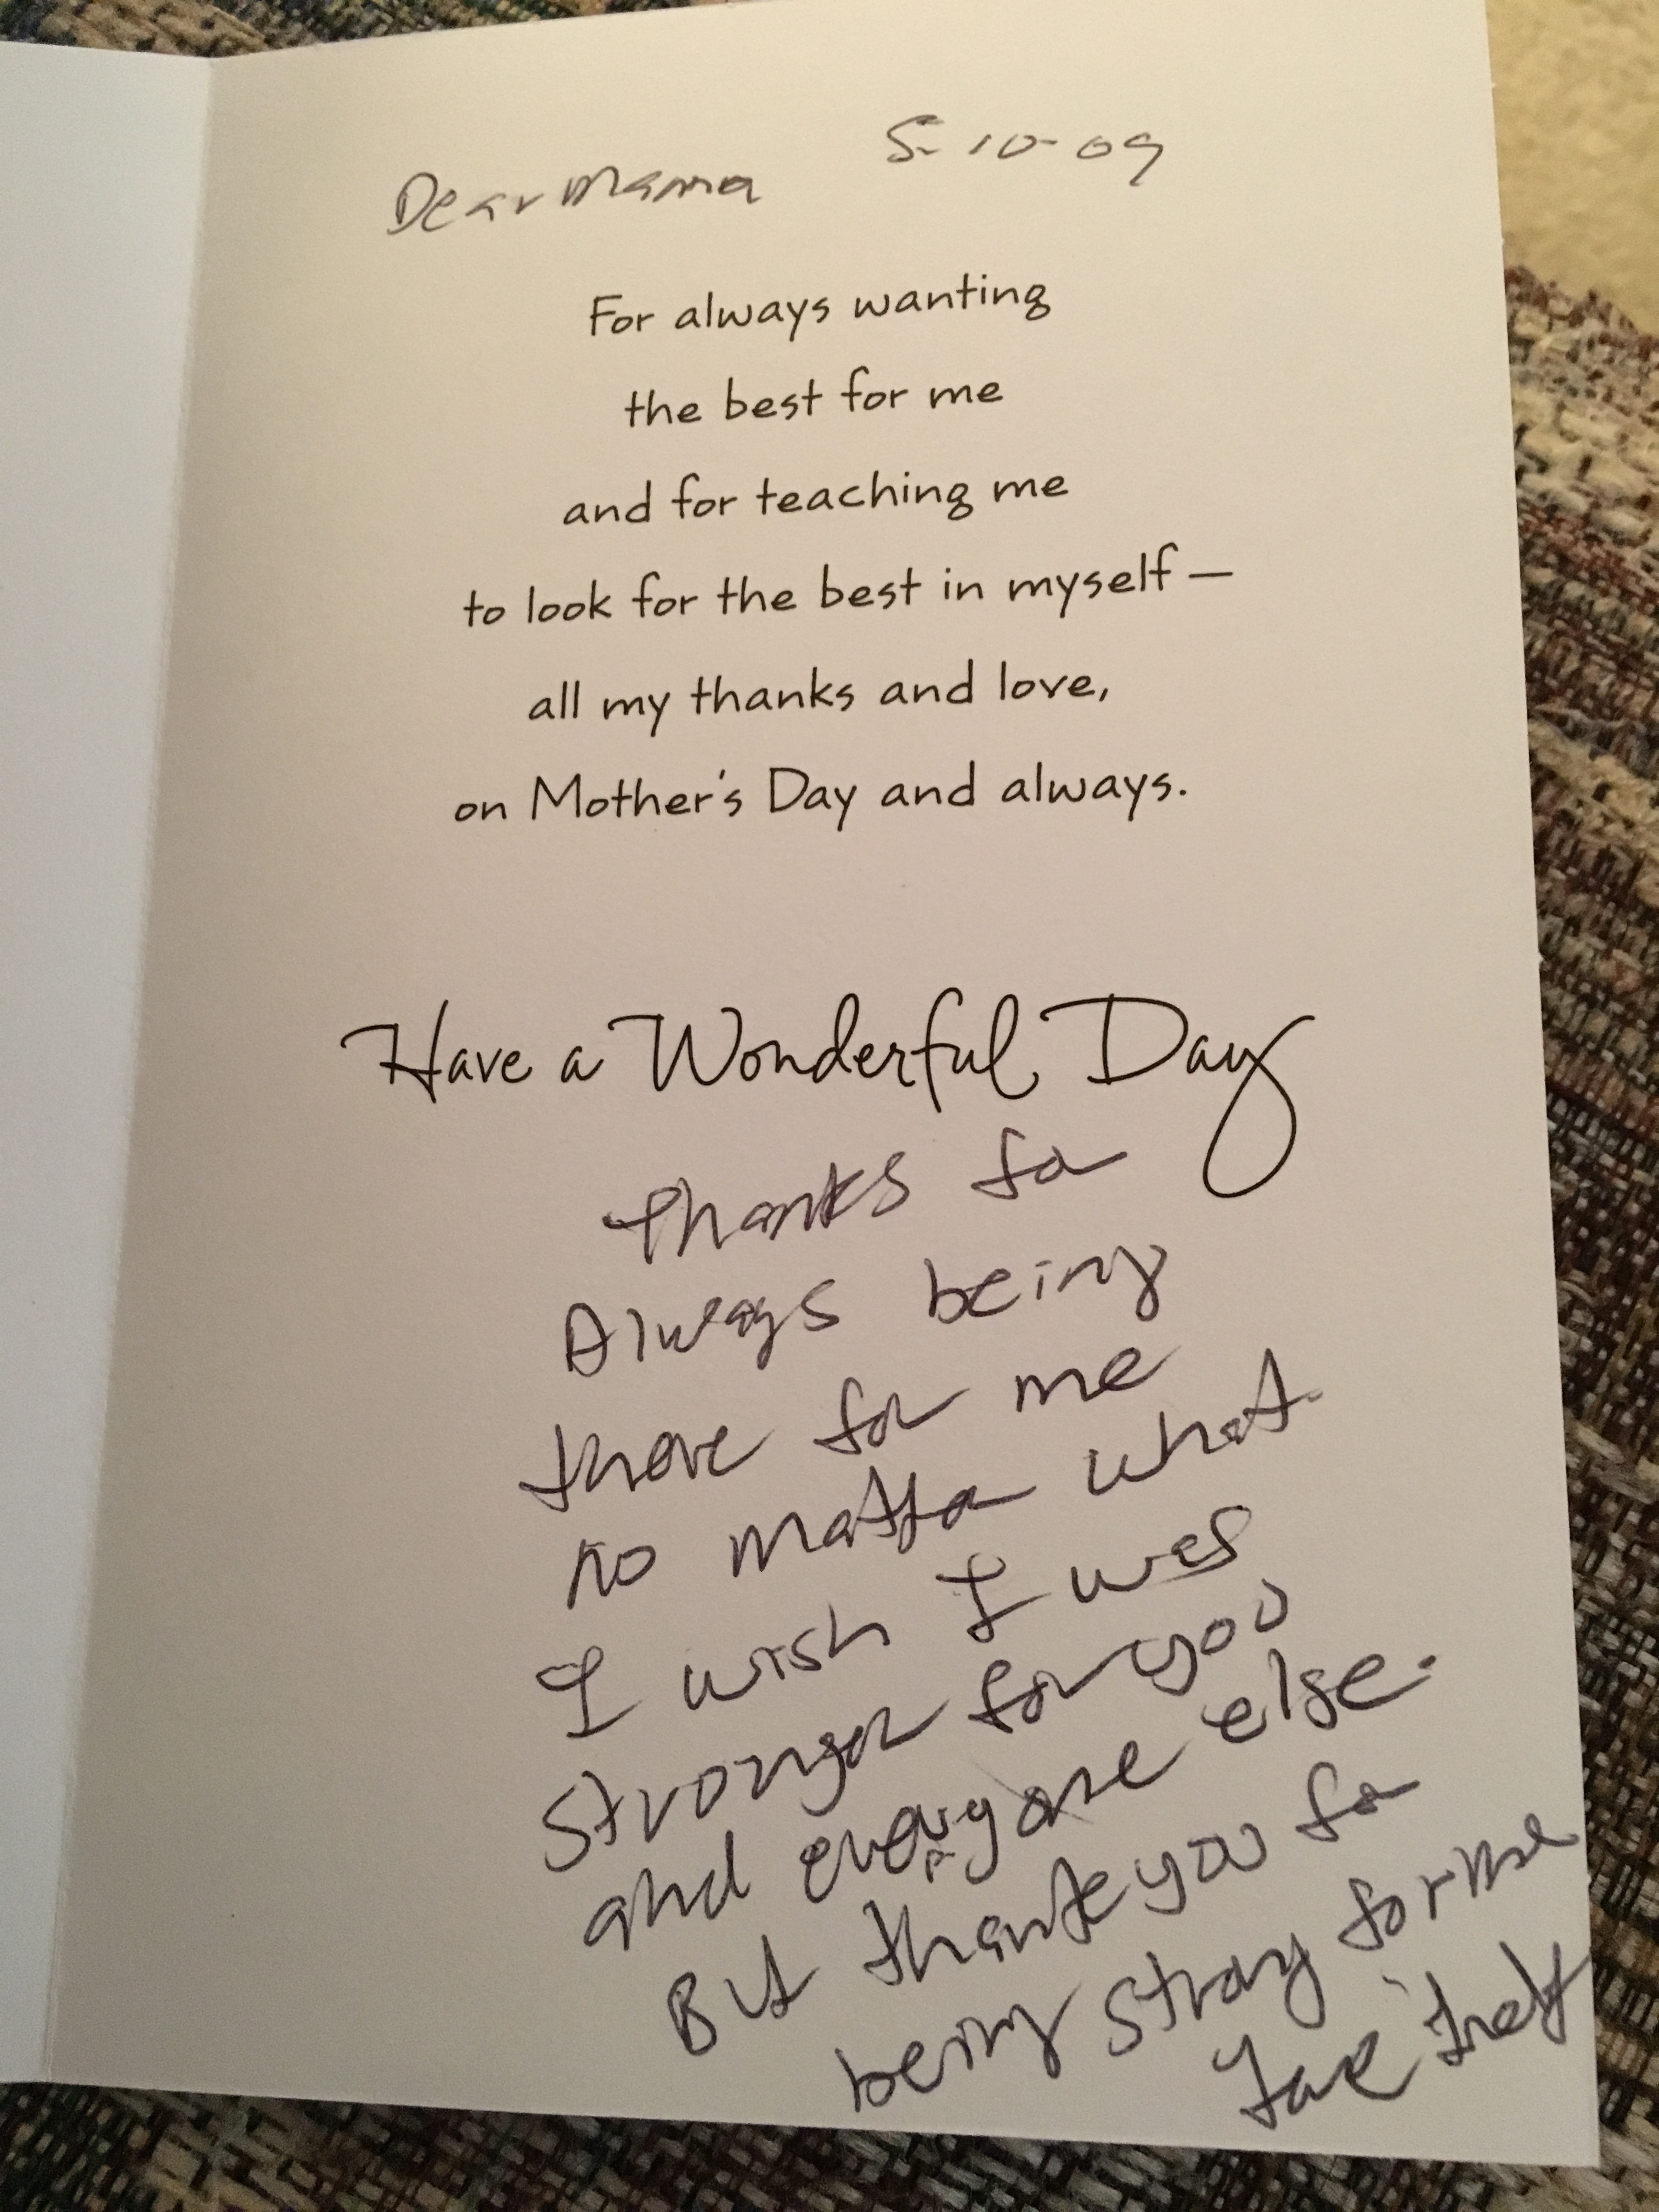 Dear Mama 5-10-09
For always wanting
the best for me
and for teaching me
to look for the best in myself —
all my thanks and love,
on Mother's Day and always.
Have a Wonderful Day
Thanks for
Always being
there for me
no matter what.
I wish I was
stronger for you
and everyone else.
But thank you for
being strong for me
Love